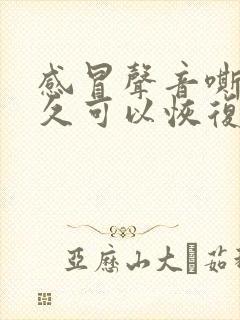 感冒聲音嘶
久可以恢復
亞歷山大 茹